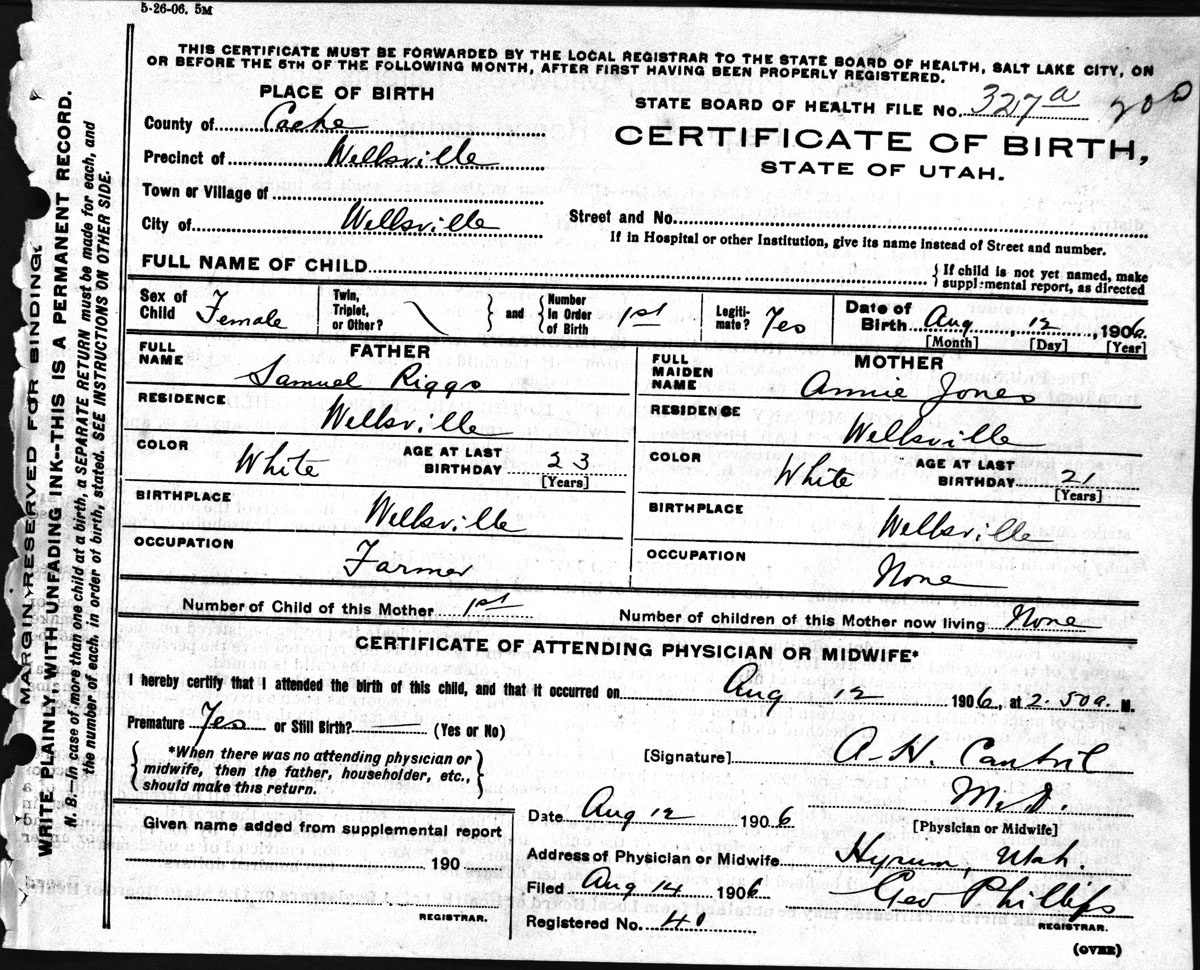 5-26-06. 5M
THIS CERTIFICATE MUST BE FORWARDED BY THE LOCAL REGISTRAR TO THE STATE BOARD OF HEALTH, SALT LAKE CITY, ON
OR BEFORE THE 5TH OF THE FOLLOWING MONTH, AFTER FIRST HAVING BEEN PROPERLY REGISTERED.
PLACE OF BIRTH
STATE BOARD OF HEALTH FILE No. 327a 200
County of Cache
CERTIFICATE OF BIRTH,
Precinct of Wellsville
STATE OF UTAH.
Town or Village of
City of Wellsville
Street and No.
If in Hospital or other Institution, give its name instead of Street and number.
FULL NAME OF CHILD
If child is not yet named, make
supplemental report, as directed
Sex of Child Female
Twin, Triplet, or Other? \ and Number In Order of Birth 1st
Legiti-mate? Yes
Date of Birth Aug 12, 1906.
[Month] [Day] [Year]
FATHER
FULL NAME Samuel Riggs
MOTHER
FULL MAIDEN NAME Annie Jones
RESIDENCE Wellsville
RESIDENCE Wellsville
COLOR White AGE AT LAST BIRTHDAY 23 [Years]
COLOR White AGE AT LAST BIRTHDAY 21 [Years]
BIRTHPLACE Wellsville
BIRTHPLACE Wellsville
OCCUPATION Farmer
OCCUPATION None
Number of Child of this Mother 1st Number of children of this Mother now living None
CERTIFICATE OF ATTENDING PHYSICIAN OR MIDWIFE*
I hereby certify that I attended the birth of this child, and that it occurred on Aug 12 1906, at 2.50a. M.
Premature Yes or Still Birth? (Yes or No)
*When there was no attending physician or
midwife, then the father, householder, etc.,
should make this return.
[Signature] A-H. Cantril
M.D.
[Physician or Midwife]
Given name added from supplemental report
190
REGISTRAR.
Date Aug 12 1906
Address of Physician or Midwife Hyrum, Utah.
Filed Aug 14 1906 Geo Phillips
REGISTRAR.
Registered No. 40
(OVER)
MARGIN RESERVED FOR BINDING.
WRITE PLAINLY, WITH UNFADING INK--THIS IS A PERMANENT RECORD.
N. B.—In case of more than one child at a birth, a SEPARATE RETURN must be made for each, and
the number of each, in order of birth, stated. SEE INSTRUCTIONS ON OTHER SIDE.